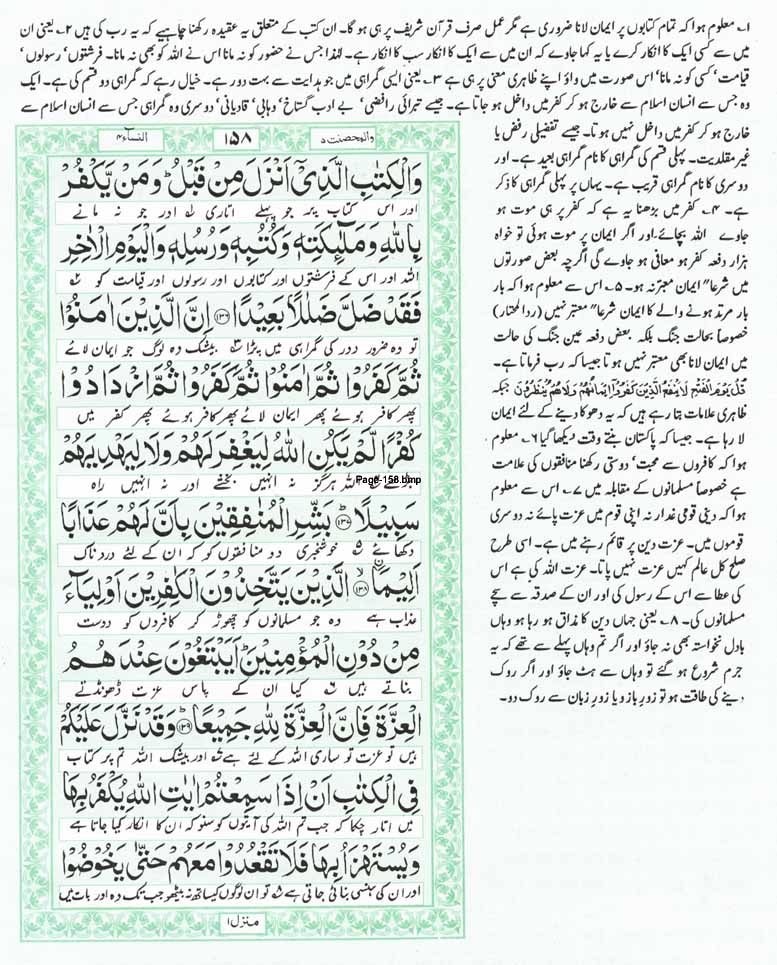 ۱۔ معلوم ہوا کہ تمام کتابوں پر ایمان لانا ضروری ہے مگر عمل صرف قرآن شریف پر ہی ہو گا۔ ان کتب کے متعلق یہ عقیدہ رکھنا چاہیے کہ یہ رب کی ہیں ۲۔ یعنی ان
میں سے کسی ایک کا انکار کرے یا یہ کہا جاوے کہ ان میں سے ایک کا انکار سب کا انکار ہے۔ لہٰذا جس نے حضور کو نہ مانا اس نے اللہ کو بھی نہ مانا۔ فرشتوں' رسولوں'
قیامت' کسی کو نہ مانا' اس صورت میں واؤ اپنے ظاہری معنی پر ہی ہے ۳۔ یعنی ایسی گمراہی میں جو ہدایت سے بہت دور ہے۔ خیال رہے کہ گمراہی دو قسم کی ہے۔ ایک
وہ جس سے انسان اسلام سے خارج ہو کر کفر میں داخل ہو جاتا ہے۔ جیسے تبرائی رافضی' بے ادب گستاخ' وہابی' قادیانی' دوسری وہ گمراہی جس سے انسان اسلام سے
خارج ہو کر کفر میں داخل نہیں ہوتا۔ جیسے تفضیلی رفض یا
غیر مقلدیت۔ پہلی قسم کی گمراہی کا نام گمراہی بعید ہے۔ اور
دوسری کا نام گمراہی قریب ہے۔ یہاں پر پہلی گمراہی کا ذکر
ہے۔ ۴۔ کفر میں بڑھنا یہ ہے کہ کفر پر ہی موت ہو
جاوے اللہ بچائے۔ اور اگر ایمان پر موت ہوئی تو خواہ
ہزار دفعہ کفر ہو معافی ہو جاوے گی اگرچہ بعض صورتوں
میں شرعا" ایمان معتبر نہ ہو۔ ۵۔ اس سے معلوم ہوا کہ بار
بار مرتد ہونے والے کا ایمان شرعا" معتبر نہیں (ردالمختار)
خصوصاً بحالت جنگ بلکہ بعض دفعہ عین جنگ کی حالت
میں ایمان لانا بھی معتبر نہیں ہوتا جیسا کہ رب فرماتا ہے۔
قُلْ یَوْمَ الْفَتْحِ لَا یَنْفَعُ الَّذِیْنَ کَفَرُوْٓا اِیْمَانُهُمْ وَلَا هُمْ یُنْظَرُوْنَ جبکہ
ظاہری علامات بتا رہے ہیں کہ یہ دھوکا دینے کے لئے ایمان
لا رہا ہے۔ جیسا کہ پاکستان بنتے وقت دیکھا گیا ۶۔ معلوم
ہوا کہ کافروں سے محبت' دوستی رکھنا منافقوں کی علامت
ہے خصوصاً مسلمانوں کے مقابلہ میں ۷۔ اس سے معلوم
ہوا کہ دینی قومی غدار نہ اپنی قوم میں عزت پائے نہ دوسری
قوموں میں۔ عزت دین پر قائم رہنے میں ہے۔ اسی طرح
صلح کل عالم کہیں عزت نہیں پاتا۔ عزت اللہ کی ہے اس
کی عطا سے اس کے رسول کی اور ان کے صدقہ سے سچے
مسلمانوں کی۔ ۸۔ یعنی جہاں دین کا مذاق ہو رہا ہو وہاں
بادل نخواستہ بھی نہ جاؤ اور اگر تم وہاں پہلے سے تھے کہ یہ
جرم شروع ہو گئے تو وہاں سے ہٹ جاؤ اور اگر روک
دینے کی طاقت ہو تو زور بازو یا زور زبان سے روک دو۔
والمحصنت ۵ ۱۵۸ النسآء ۴
وَالْكِتٰبِ الَّذِیْۤ اَنْزَلَ مِنْ قَبْلُ ؕ وَمَنْ یَّكْفُرْ
اور اس کتاب پر جو پہلے اتاری ۱ اور جو نہ مانے
بِاللّٰهِ وَمَلٰٓئِكَتِهٖ وَكُتُبِهٖ وَرُسُلِهٖ وَالْیَوْمِ الْاٰخِرِ
اللہ اور اس کے فرشتوں اور کتابوں اور رسولوں اور قیامت کو ۲
فَقَدْ ضَلَّ ضَلٰلًۢا بَعِیْدًا ﴿۱۳۶﴾ اِنَّ الَّذِیْنَ اٰمَنُوْا
تو وہ ضرور دور کی گمراہی میں پڑا ۳ بیشک وہ لوگ جو ایمان لائے
ثُمَّ كَفَرُوْا ثُمَّ اٰمَنُوْا ثُمَّ كَفَرُوْا ثُمَّ ازْدَادُوْا
پھر کافر ہوئے پھر ایمان لائے پھر کافر ہوئے پھر کفر میں
كُفْرًا لَّمْ یَكُنِ اللّٰهُ لِیَغْفِرَ لَهُمْ وَلَا لِیَهْدِیَهُمْ
Page-158.bmp
اللہ ہرگز نہ انہیں بخشے اور نہ انہیں راہ
سَبِیْلًا ﴿۱۳۷﴾ بَشِّرِ الْمُنٰفِقِیْنَ بِاَنَّ لَهُمْ عَذَابًا
دکھائے ۵ خوشخبری دو منافقوں کو کہ ان کے لئے دردناک
اَلِیْمَا ﴿۱۳۸﴾ الَّذِیْنَ یَتَّخِذُوْنَ الْكٰفِرِیْنَ اَوْلِیَآءَ
عذاب ہے وہ جو مسلمانوں کو چھوڑ کر کافروں کو دوست
مِنْ دُوْنِ الْمُؤْمِنِیْنَ ؕ اَیَبْتَغُوْنَ عِنْدَهُمُ
بناتے ہیں ۶ کیا ان کے پاس عزت ڈھونڈتے
الْعِزَّةَ فَاِنَّ الْعِزَّةَ لِلّٰهِ جَمِیْعًا ﴿۱۳۹﴾ وَقَدْ نَزَّلَ عَلَیْكُمْ
ہیں تو عزت تو ساری اللہ کے لئے ہے ۷ اور بیشک اللہ تم پر کتاب
فِی الْكِتٰبِ اَنْ اِذَا سَمِعْتُمْ اٰیٰتِ اللّٰهِ یُكْفَرُ بِهَا
میں اتار چکا کہ جب تم اللہ کی آیتوں کو سنو کہ ان کا انکار کیا جاتا ہے
وَیُسْتَهْزَاُ بِهَا فَلَا تَقْعُدُوْا مَعَهُمْ حَتّٰی یَخُوْضُوْا
اور ان کی ہنسی بنائی جاتی ہے ۸ تو ان لوگوں کیساتھ نہ بیٹھو جب تک وہ اور بات میں
منزل ۱